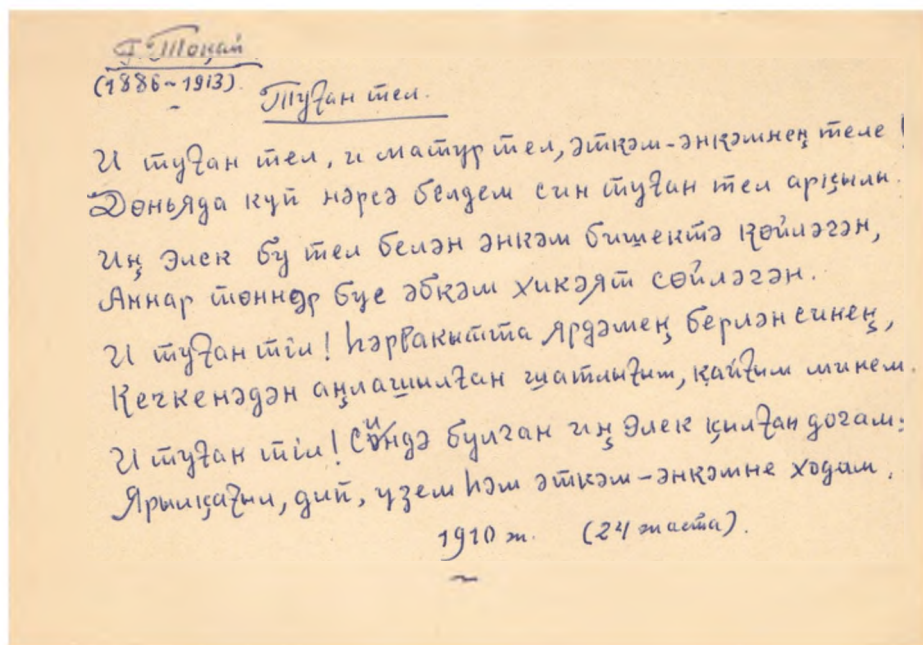 Ғ. Тоқай
(1886-1913).
Туған тел.
И туған тел, и матур тел, әткәм-әнкәмнең теле!
Дөньяда күп нәрсә белдем син туған тел арқылы.
Иң элек бу тел белән әнкәм бишектә көйләгән,
Аннар төннәр буе әбкәм хикәят сөйләгән.
И туған тіл! Һәрвакытта ярдәмең берлән синең,
Кечкенәдән аңлашылған шатлығым, қайғым минем.
И туған тіл! Синдә булган иң элек қылған догам:
Ярылқағыл, дип, үзем һәм әткәм-әнкәмне ходам.
1910 ж. (24 жаста).